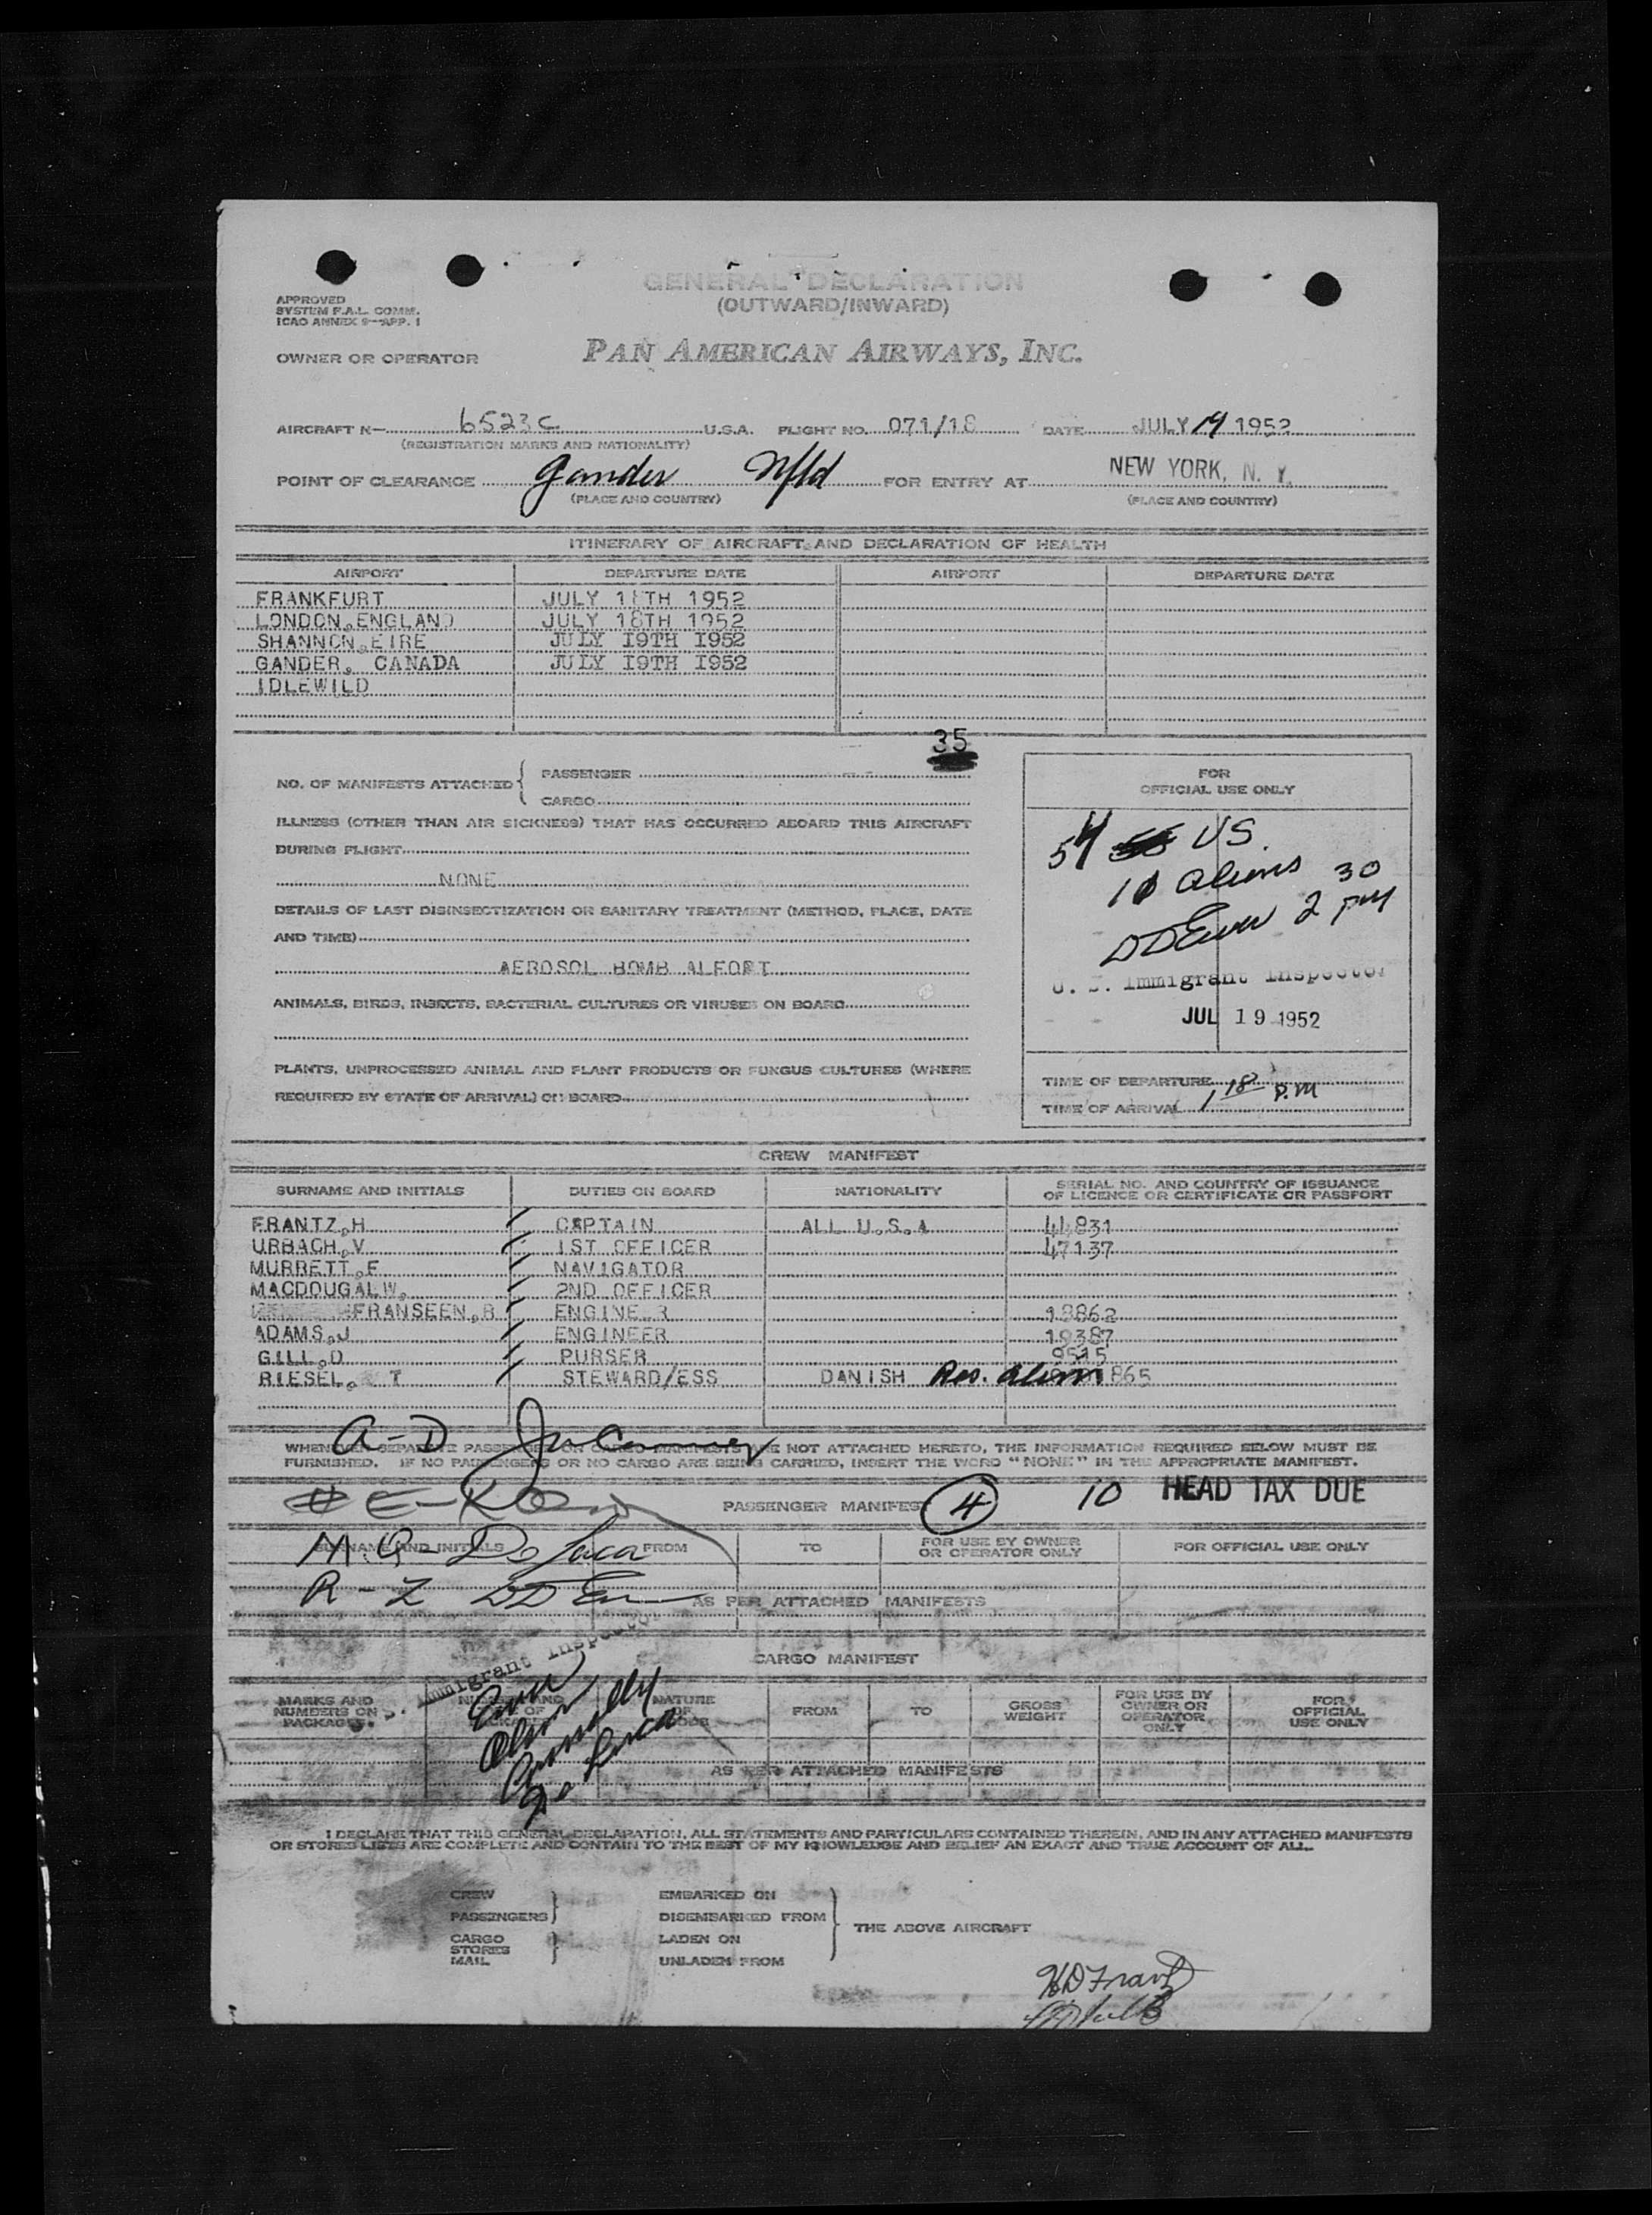 GENERAL DECLARATION
(OUTWARD/INWARD)
APPROVED
SYSTEM F.A.L. COMM.
ICAO ANNEX 9—APP. 1
OWNER OR OPERATOR PAN AMERICAN AIRWAYS, INC.
AIRCRAFT N— 6523C U.S.A. FLIGHT NO. 071/18 DATE JULY 19 1952
(REGISTRATION MARKS AND NATIONALITY)
POINT OF CLEARANCE Gander Nfld FOR ENTRY AT NEW YORK, N. Y.
(PLACE AND COUNTRY) (PLACE AND COUNTRY)
ITINERARY OF AIRCRAFT AND DECLARATION OF HEALTH
AIRPORT DEPARTURE DATE AIRPORT DEPARTURE DATE
FRANKFURT JULY 18TH 1952
LONDON,ENGLAND JULY 18TH 1952
SHANNON,EIRE JULY I9TH I952
GANDER, CANADA JULY I9TH I952
IDLEWILD
35
NO. OF MANIFESTS ATTACHED { PASSENGER
CARGO
ILLNESS (OTHER THAN AIR SICKNESS) THAT HAS OCCURRED ABOARD THIS AIRCRAFT
DURING FLIGHT
NONE
DETAILS OF LAST DISINSECTIZATION OR SANITARY TREATMENT (METHOD, PLACE, DATE
AND TIME)
AEROSOL BOMB ALFORT
ANIMALS, BIRDS, INSECTS, BACTERIAL CULTURES OR VIRUSES ON BOARD
PLANTS, UNPROCESSED ANIMAL AND PLANT PRODUCTS OR FUNGUS CULTURES (WHERE
REQUIRED BY STATE OF ARRIVAL) ON BOARD
FOR
OFFICIAL USE ONLY
54 US.
10 aliens 30
DDEwen 2 PM
U. S. Immigrant Inspector
JUL 19 1952
TIME OF DEPARTURE
TIME OF ARRIVAL 1 18 P.M
CREW MANIFEST
SURNAME AND INITIALS DUTIES ON BOARD NATIONALITY SERIAL NO. AND COUNTRY OF ISSUANCE
OF LICENCE OR CERTIFICATE OR PASSPORT
FRANTZ,H CAPTAIN ALL U.S.A 44831
URBACH,V 1ST OFFICER 47137
MURRETT,F NAVIGATOR
MACDOUGALW, 2ND OFFICER
FRANSEEN,B ENGINEER 18862
ADAMS,J ENGINEER 19387
GILL,D PURSER 9515
RIESEL, T STEWARD/ESS DANISH Res. alien 1865
A-D
WHENEVER SEPARATE PASSENGER OR CARGO MANIFESTS ARE NOT ATTACHED HERETO, THE INFORMATION REQUIRED BELOW MUST BE
FURNISHED. IF NO PASSENGERS OR NO CARGO ARE BEING CARRIED, INSERT THE WORD "NONE" IN THE APPROPRIATE MANIFEST.
E-K PASSENGER MANIFEST 4 10 HEAD TAX DUE
SURNAME AND INITIALS FROM TO FOR USE BY OWNER
OR OPERATOR ONLY FOR OFFICIAL USE ONLY
M.Q- De Luca
R-Z
AS PER ATTACHED MANIFESTS
Immigrant Inspector
CARGO MANIFEST
MARKS AND
NUMBERS ON
PACKAGES NUMBER AND NATURE
OF FROM TO GROSS
WEIGHT FOR USE BY
OWNER OR
OPERATOR
ONLY FOR
OFFICIAL
USE ONLY
De Luca
AS PER ATTACHED MANIFESTS
I DECLARE THAT THIS GENERAL DECLARATION, ALL STATEMENTS AND PARTICULARS CONTAINED THEREIN, AND IN ANY ATTACHED MANIFESTS
OR STORES LISTS ARE COMPLETE AND CONTAIN TO THE BEST OF MY KNOWLEDGE AND BELIEF AN EXACT AND TRUE ACCOUNT OF ALL.
CREW EMBARKED ON
PASSENGERS DISEMBARKED FROM
THE ABOVE AIRCRAFT
CARGO LADEN ON
STORES
MAIL UNLADEN FROM
HDFrantz